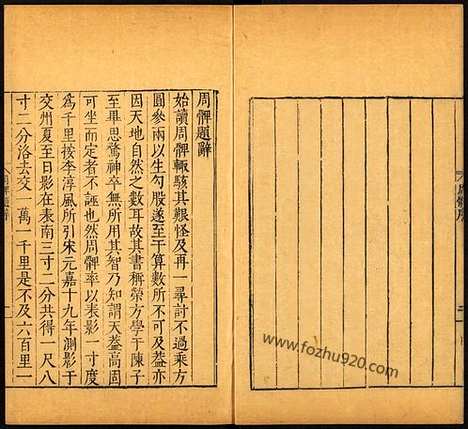 周髀題辭
始讀周髀輒駭其艱怪及再一尋討不過乘方
圓參兩以生勾股遂至于算數所不可及葢亦
因天地自然之數耳故其書稱榮方學于陳子
至畢思驚神卒無所用其智乃知謂天葢高固
可坐而定者不誣也然周髀率以表影一寸度
為千里按李淳風所引宋元嘉十九年測影于
交州夏至日影在表南三寸二分共得一尺八
寸二分洛去交一萬一千里是不及六百里一
周髀序
www.fozhu920.com